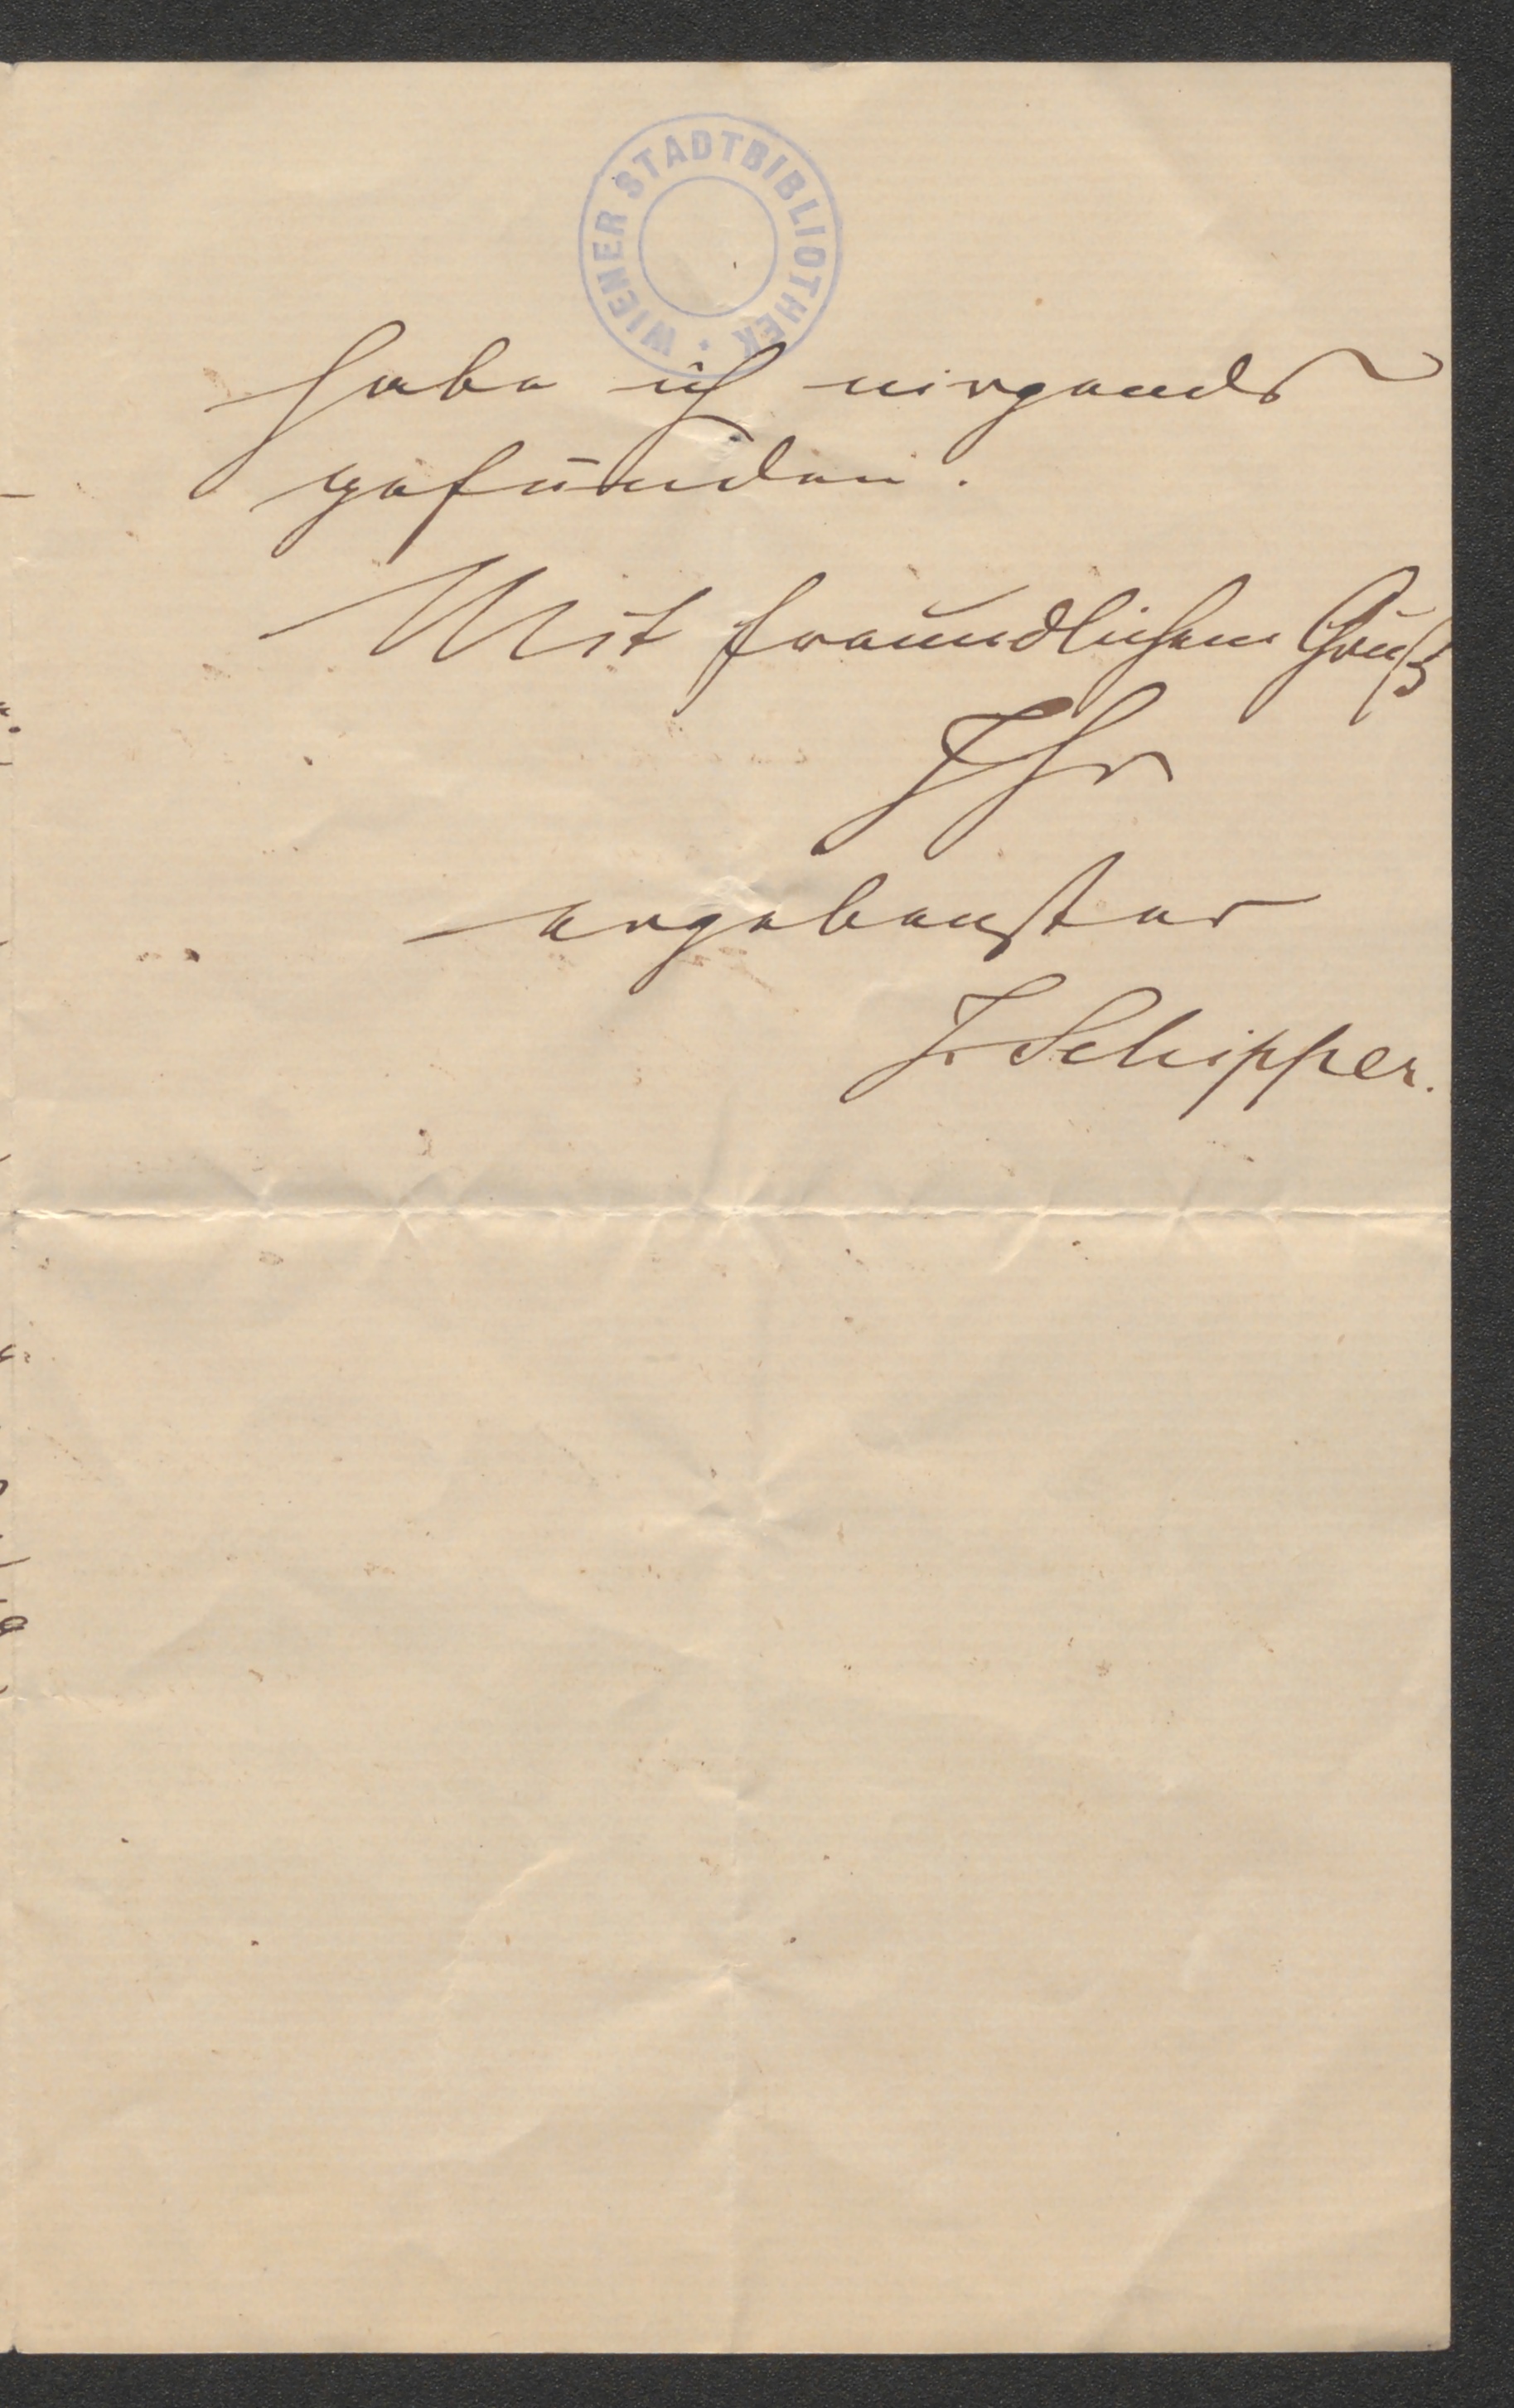 WIENER STADTBIBLIOTHEK
habe ich nirgends
gefunden.
Mit freundlichem Gruß
Ihr
ergebenster
J. Schipper.